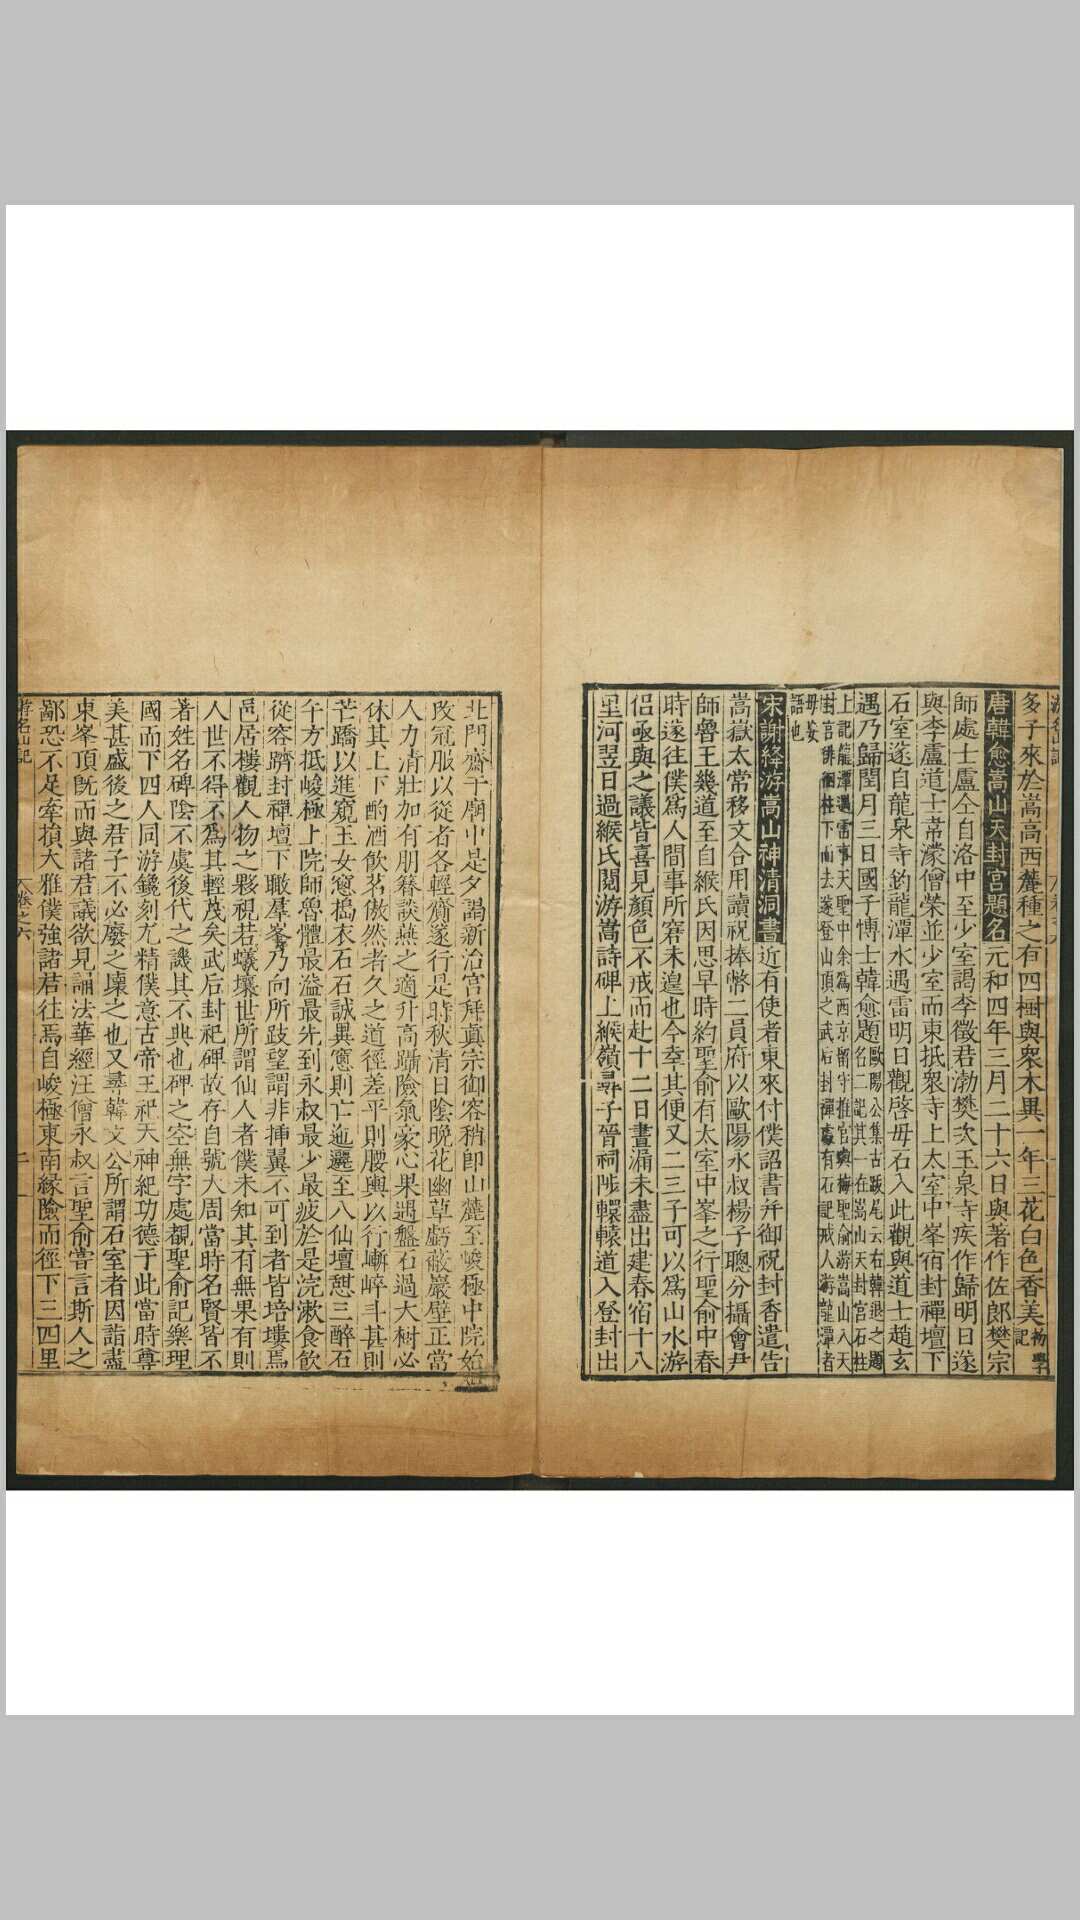 多子來於嵩高西麓種之有四樹與衆木異一年三花白色香美
唐韓愈嵩山天封宮題名元和四年三月二十六日與著作佐郎樊宗
師處士盧仝自洛中至少室謁李徵君渤樊次玉泉寺疾作歸明日遂
與李盧道士常濛僧榮並少室而東抵衆寺上太室中峯宿封禪壇下
石室遂自龍泉寺釣龍潭水遇雷明日觀啓母石入此觀與道士趙玄
遇乃歸閏月三日國子博士韓愈題
歐陽公集古跋尾云右韓退之題
名二記其一在嵩山天封宮石柱
上記龍潭遇雷事天聖中余爲西京留守推官與梅聖俞游嵩山入天
封宮徘徊柱下而去遂登山頂之武后封禪處有石記戒人游龍潭者
毋妄
語也
宋謝絳游嵩山神清洞書近有使者東來付僕詔書并御祝封香遣告
嵩嶽太常移文合用讀祝捧幣二員府以歐陽永叔楊子聰分攝會尹
師魯王幾道至自緱氏因思早時約聖俞有太室中峯之行聖俞中春
時遂往僕爲人間事所窘未遑也今幸其便又二三子可以爲山水游
侶亟與之議皆喜見顏色不戒而赴十二日晝漏未盡出建春宿十八
里河翌日過緱氏閱游嵩詩碑上緱嶺尋子晉祠陟轘轅道入登封出
北門齋于廟中是夕謁新治宮拜真宗御容稍即山麓至峻極中院始
改冠服以從者各輕齎遂行是時秋清日陰晚花幽草虧蔽巖壁正當
人力清壯加有朋簪談燕之適升高躡險氣豪心果遇盤石過大樹必
休其上下酌酒飲茗傲然者久之道徑差平則腰輿以行嶃崪斗甚則
芒蹻以進窺玉女窻搗衣石石誠異窻則亡迤邐至八仙壇憩三醉石
午方抵峻極上院師魯體最溢最先到永叔最少最疲於是浣漱食飲
從容躋封禪壇下瞰羣峯乃向所跂望謂非揷翼不可到者皆培塿焉
邑居樓觀人物之夥視若蟻壤世所謂仙人者僕未知其有無果有則
人世不得不爲其輕茂矣武后封祀碑故存自號大周當時名賢皆不
著姓名碑陰不虞後代之譏其不典也碑之空無字處覩聖俞記樂理
國而下四人同游鑱刻尤精僕意古帝王祀天神紀功德于此當時尊
美甚盛後之君子不必廢之壞之也又尋韓文公所謂石室者因詣盡
東峯頂旣而與諸君議欲見誦法華經汪僧永叔言聖俞嘗言斯人之
鄙恐不足牽損大雅僕強諸君往焉自峻極東南緣險而徑下三四里
游名山記
卷之六
二